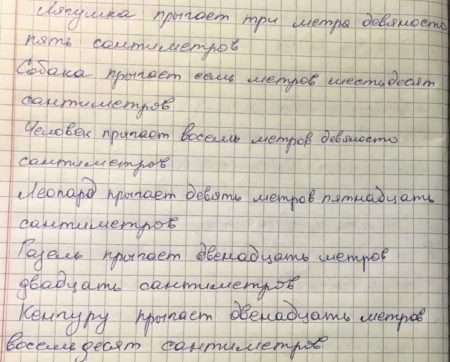 Лягушка прыгает три метра девяносто
пять сантиметров
Собака прыгает семь метров шестьдесят
сантиметров
Человек прыгает восемь метров девяносто
сантиметров
Леопард прыгает девять метров пятнадцать
сантиметров
Газель прыгает двенадцать метров
двадцать сантиметров
Кенгуру прыгает двенадцать метров
восемьдесят сантиметров